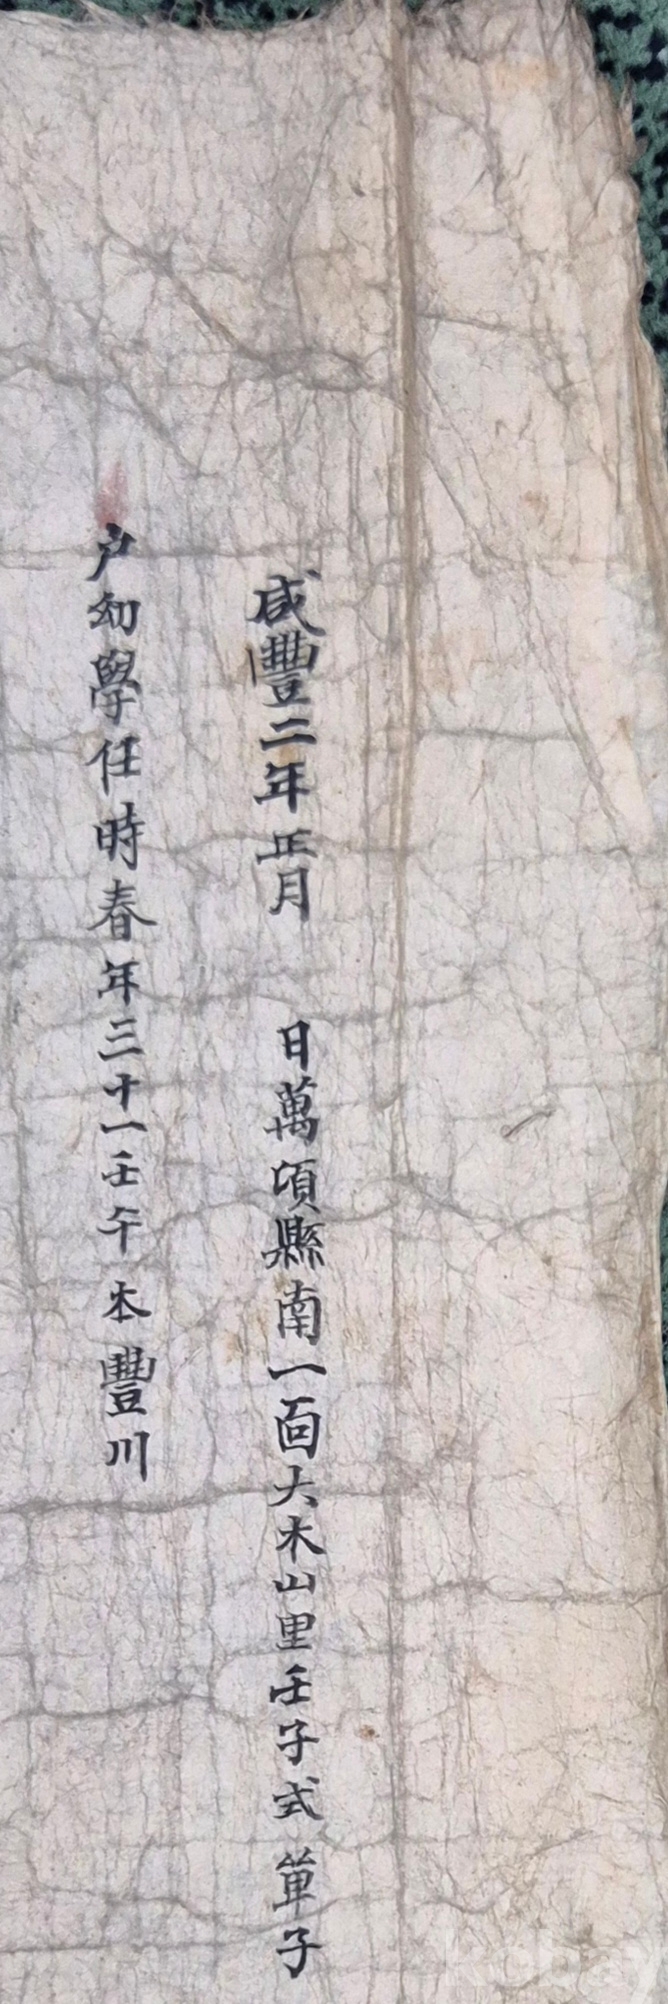 咸豐二年正月 日萬頃縣南一面大木山里壬子式單子
戶幼學任時春年三十一壬午本豐川
kobay